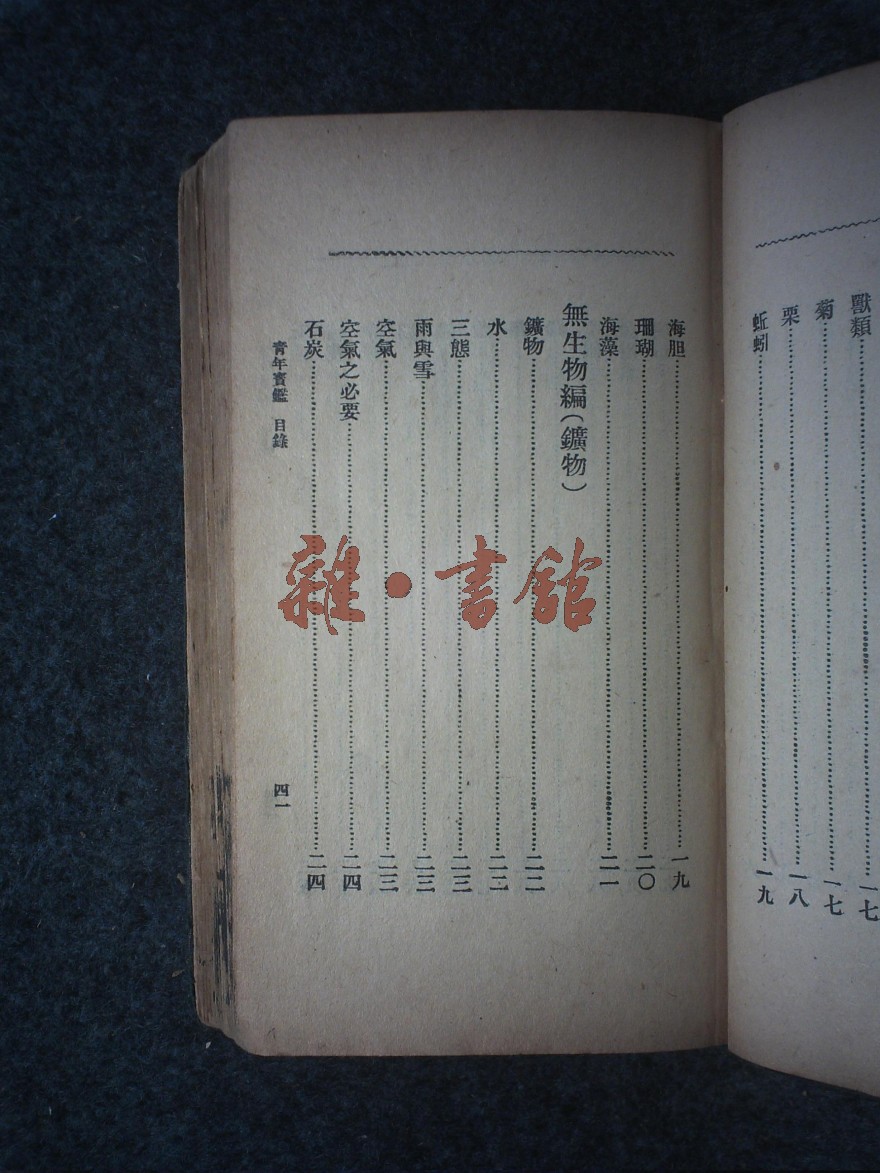 獸類 一七
菊 一七
栗 一八
蚯蚓 一九
海胆 一九
珊瑚 二〇
海藻 二一
無生物編(鑛物)
鑛物 二二
水 二二
三態 二三
雨與雪 二三
空氣 二三
空氣之必要 二四
石炭 二四
青年寶鑑 目錄
四一
雜·書館